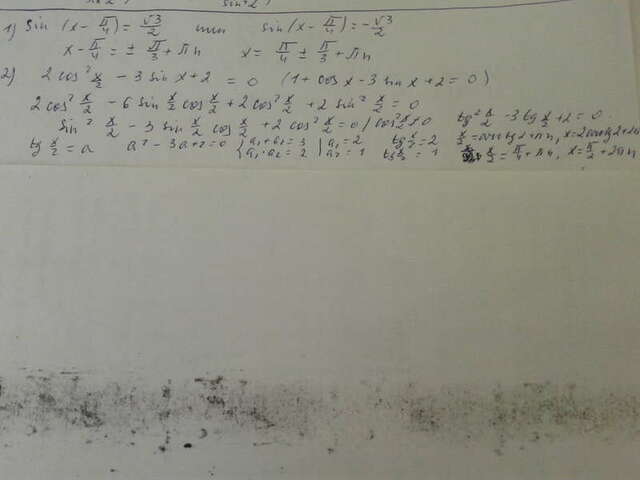 1) sin (x - π/4) = √3/2 или sin (x - π/4) = -√3/2
x - π/4 = ± π/3 + πn x = π/4 ± π/3 + πn
2) 2 cos² x/2 - 3 sin x + 2 = 0 (1 + cos x - 3 sin x + 2 = 0)
2 cos² x/2 - 6 sin x/2 cos x/2 + 2 cos² x/2 + 2 sin² x/2 = 0
sin² x/2 - 3 sin x/2 cos x/2 + 2 cos² x/2 = 0 / cos² x/2 ≠ 0 tg² x/2 - 3 tg x/2 + 2 = 0
tg x/2 = a a² - 3a + 2 = 0 { a₁ + a₂ = 3 | a₁ = 2 tg x/2 = 2 x/2 = arctg 2 + πn, x = 2 arctg 2 + 2πn
a₁ · a₂ = 2 | a₂ = 1 tg x/2 = 1 x/2 = π/4 + πn, x = π/2 + 2πn